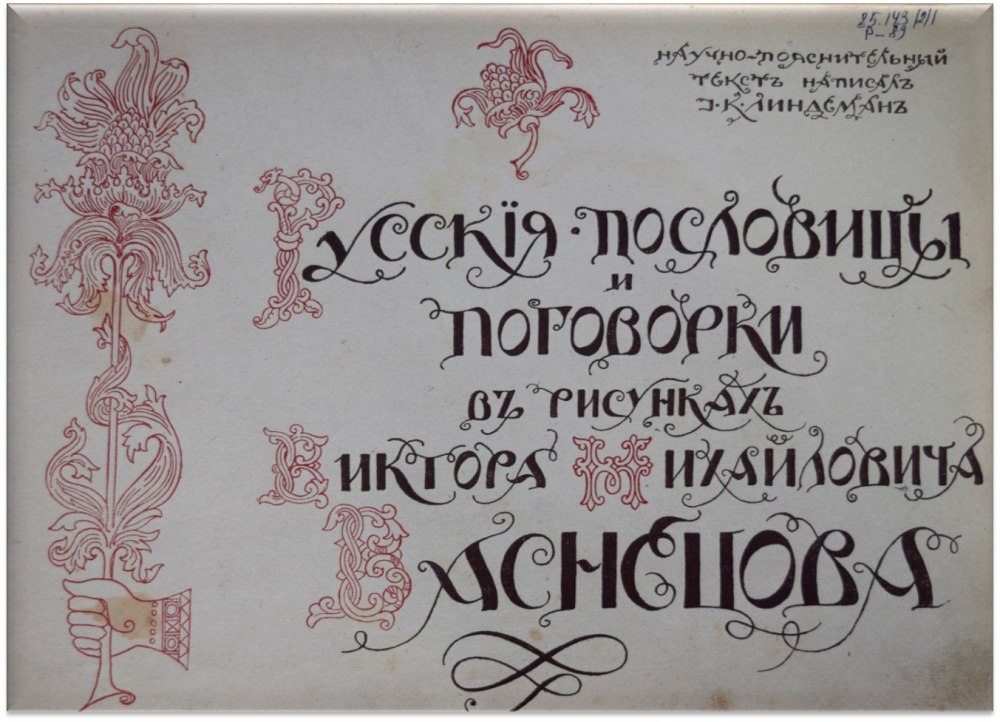 85.143(2)1
Р-89
НАУЧНО-ПОЯСНИТЕЛЬНЫЙ
ТЕКСТЪ НАПИСАЛЪ
І. К. ЛИНДЕМАНЪ
РУССКІЯ · ПОСЛОВИЦЫ
И
ПОГОВОРКИ
ВЪ РИСУНКАХЪ
ВИКТОРА МИХАЙЛОВИЧА
ВАСНЕЦОВА